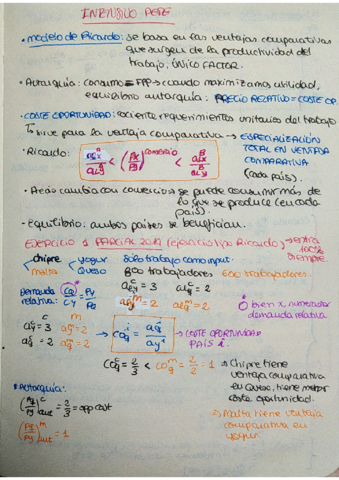 INTENSIVO PEPE
• modelo de Ricardo: se basa en las ventajas comparativas
que surgen de la productividad del
trabajo, único FACTOR.
• Autarquía: consumo = FPP → cuando maximizamos utilidad,
equilibrio autarquía: PRECIO RELATIVO = COSTE OP.
• COSTE OPORTUNIDAD: cociente requerimientos unitarios del trabajo
↳ sirve para la ventaja comparativa → ESPECIALIZACIÓN
TOTAL EN VENTAJA
COMPARATIVA
(cada país).
• Ricardo: aLx^A / aLy^A < (Px/Py)^comercio < aLx^B / aLy^B
cambia con comercio: se puede consumir más de
lo que se produce (en cada
país).
• Equilibrio: ambos países se benefician.
EJERCICIO 1 PARCIAL (ejercicio tipo Ricardo) → entra
100%
siempre.
chipre yogur Solo trabajo como input:
malta Queso 800 trabajadores 600 trabajadores
Demanda relativa: Cq/Cy = Py/Pq
bien x, numerador
demanda relativa
→ COSTE OPORTUNIDAD
PAÍS i.
CO_q^C = 2/3 < CO_q^m = 2/2 = 1 ⇒ Chipre tiene
ventaja comparativa
en Queso, tiene menor
coste oportunidad.
• Autarquía:
(Pq/Py)^C aut = 2/3 = opp cost
⇒ Malta tiene ventaja
comparativa en
yogur.
(Pq/Py)^m aut = 1